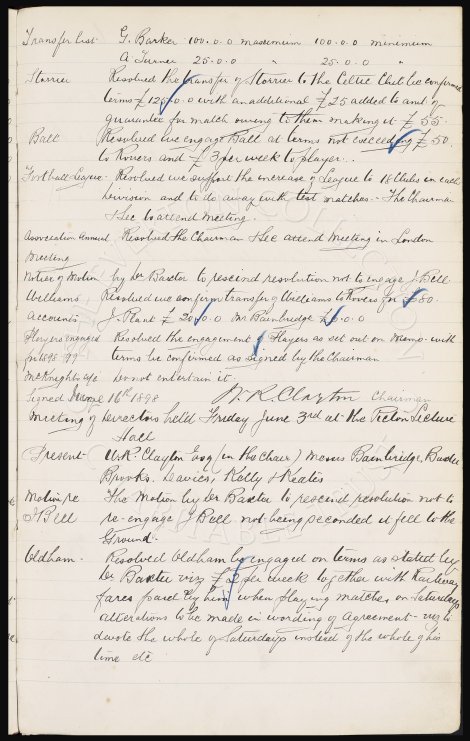 Transfer List G. Barker 100.0.0 maximum 100.0.0 minimum
A Turner 25.0.0 " 25.0.0 "
Storrier Resolved the transfer of Storrier to the Celtic Club be confirmed
terms £125.0.0 with an additional £25 added to amt of
guarantee for match owing to them making it £55.
Ball Resolved we engage Ball at terms not exceeding £50
to Rovers and £3 per week to player..
Football League - Resolved we support the increase of League to 18 Clubs in each
Division and to do away with test matches - The Chairman
& Sec to attend meeting.
Association Annual Resolved the Chairman & Sec attend Meeting in London
Meeting
Notice of Motion by Dr Baxter to rescind resolution not to engage J. Bell
Williams Resolved we confirm transfer of Williams to Rovers for £80.
Accounts J. Plant £20.0.0 Mr Bainbridge £5.0.0
Players engaged Resolved the engagement of Players as set out on Memo with
for 1898.99 terms be confirmed as signed by the Chairman
McKnights a/c Do not entertain it
Signed June 16th 1898 W. R. Clayton Chairman
Meeting of Directors held Friday June 3rd at the Picton Lecture
Hall
Present W.R. Clayton Esq (in the Chair) Messrs Bainbridge, Baxter
Brooks. Davies, Kelly & Keates
Motion re The Motion by Dr Baxter to rescind resolution not to
J Bell re-engage J Bell not being seconded it fell to the
Ground.
Oldham. Resolved Oldham be engaged on terms as stated by
Dr Baxter viz £3 per week together with Railway
fares paid by him when playing matches on Saturdays
alterations to be made in wording of Agreement - viz to
devote the whole of Saturdays instead of the whole of his
time etc